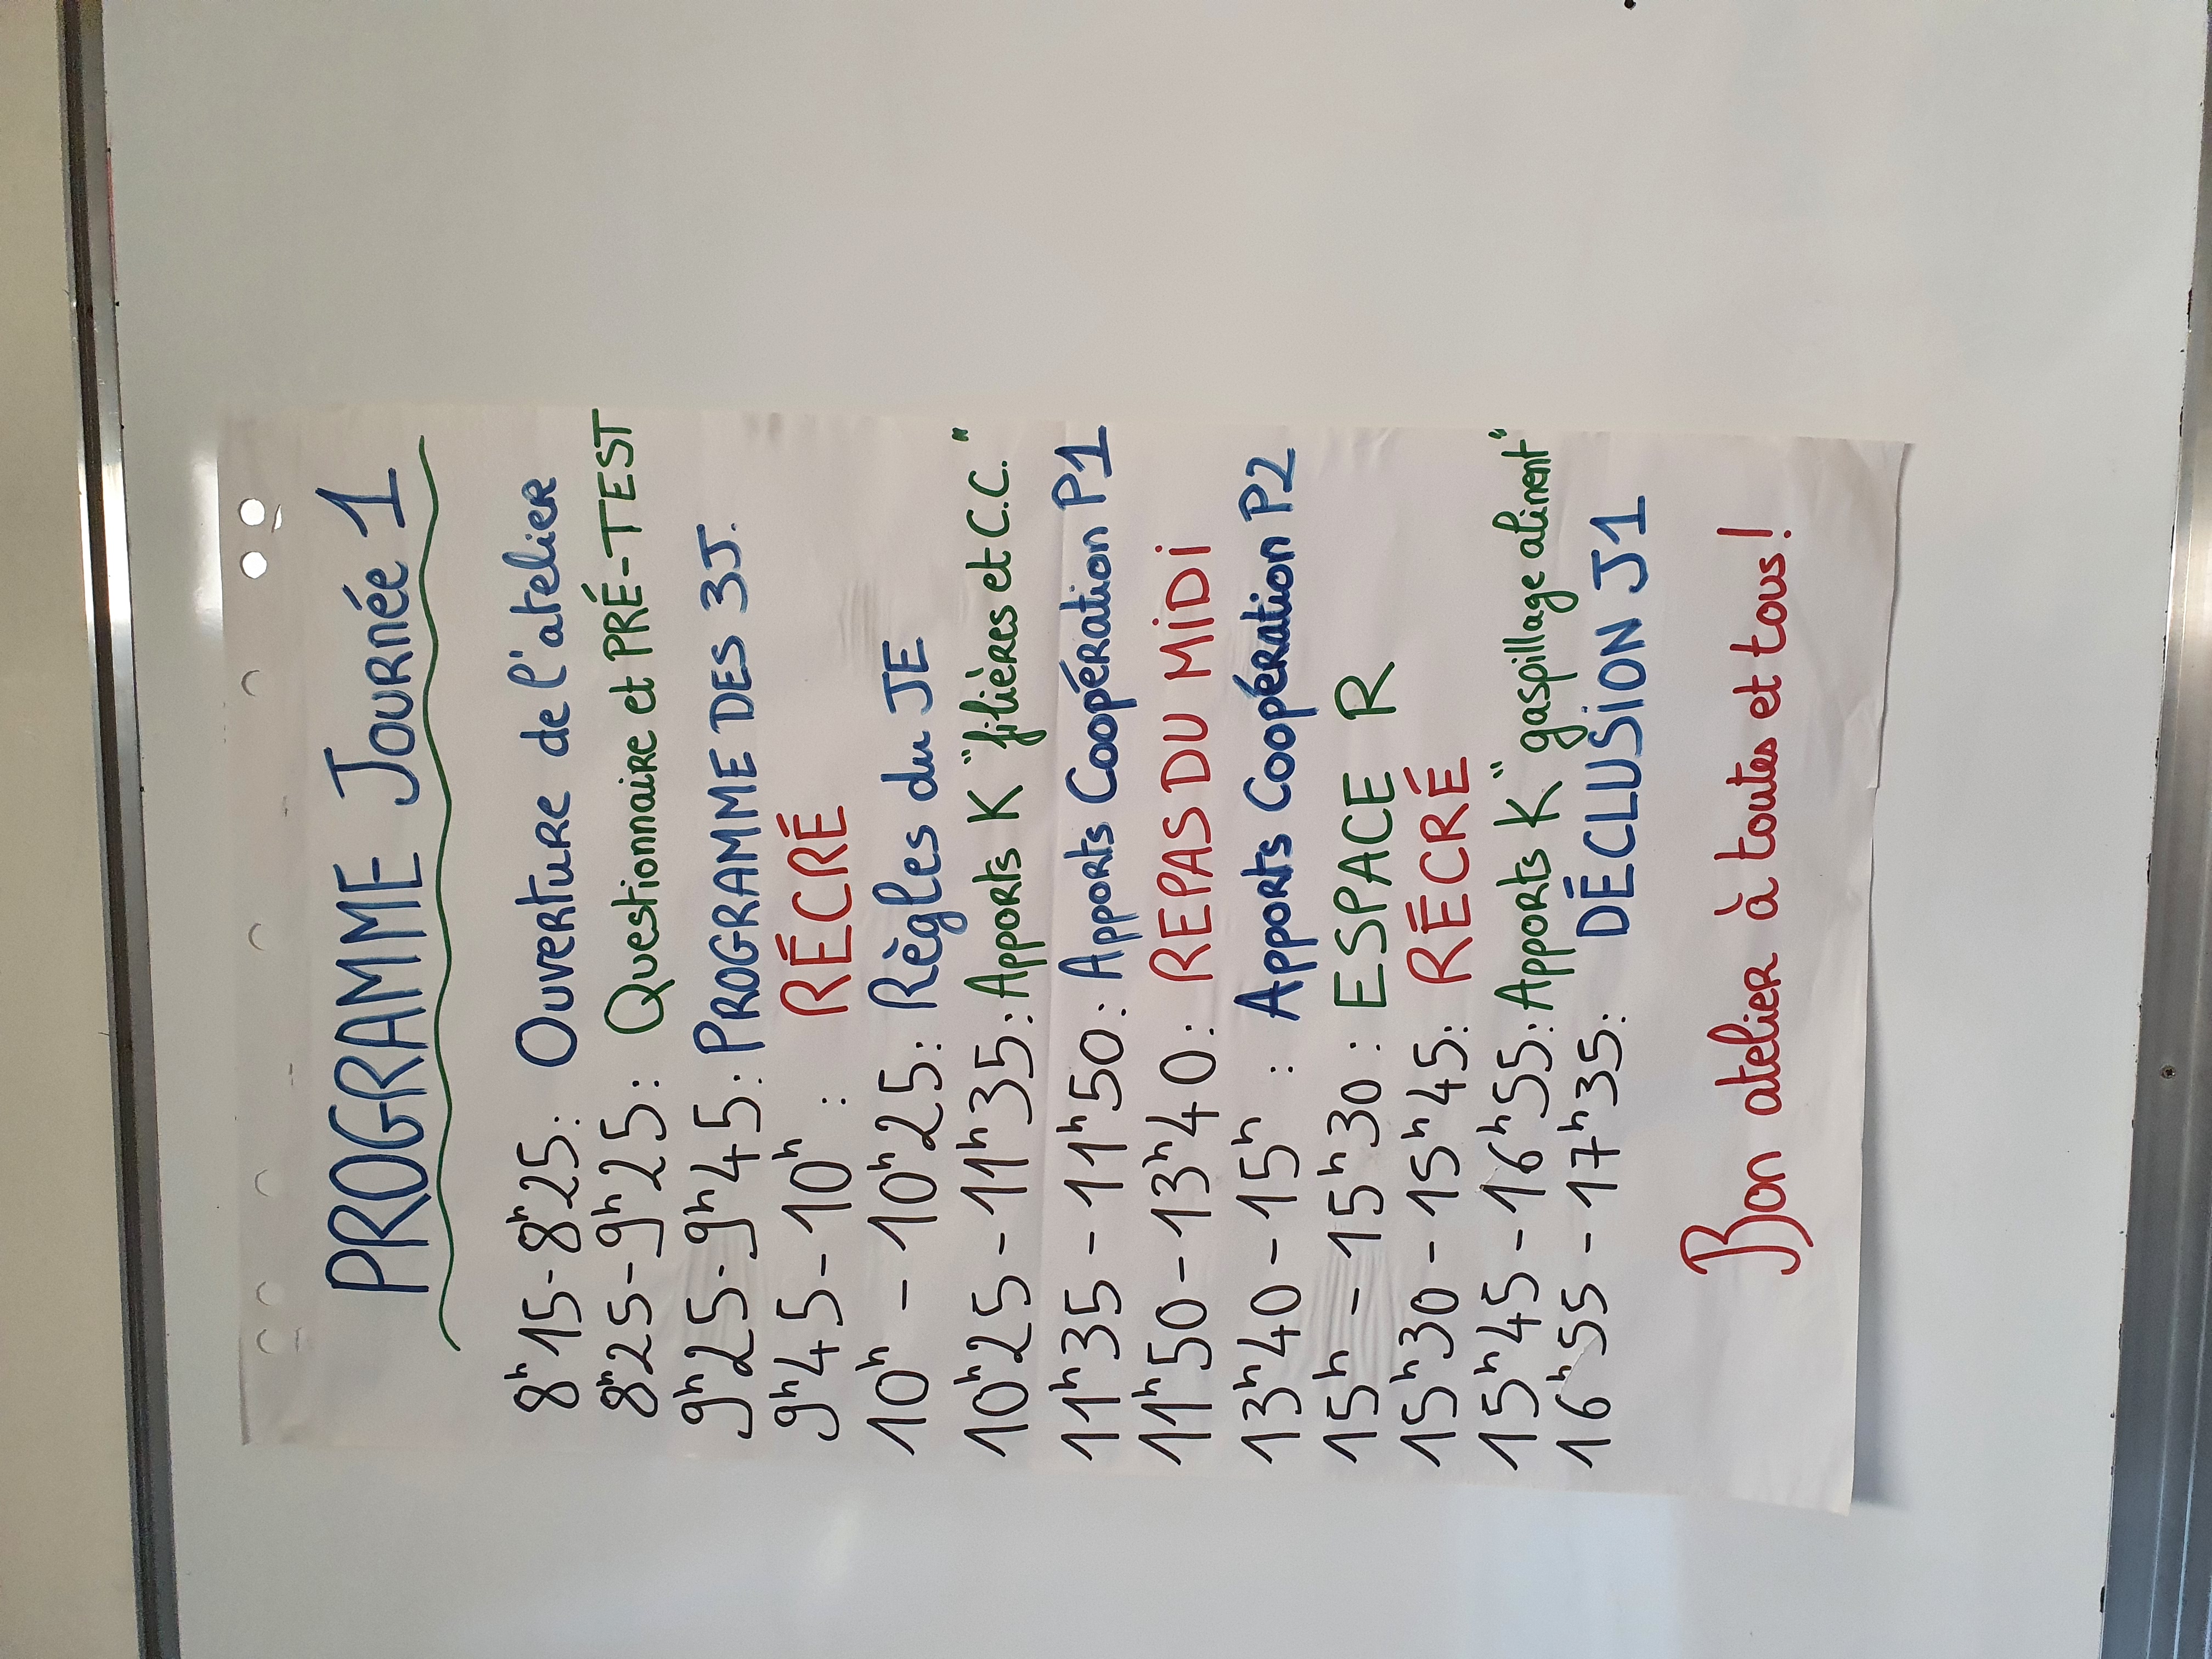 PROGRAMME Journée 1
8h15-8h25: Ouverture de l'atelier
8h25-9h25: Questionnaire et PRÉ-TEST
9h25-9h45: PROGRAMME DES 3J.
9h45-10h : RÉCRÉ
10h - 10h25: Règles du JE
10h25-11h35: Apports K "filières et C.C."
11h35-11h50: Apports Coopération P1
11h50-13h40: REPAS DU MIDI
13h40-15h : Apports Coopération P2
15h - 15h30: ESPACE R
15h30-15h45: RÉCRÉ
15h45-16h55: Apports K "gaspillage aliment"
16h55-17h35: DÉCLUSION J1
Bon atelier à toutes et tous!